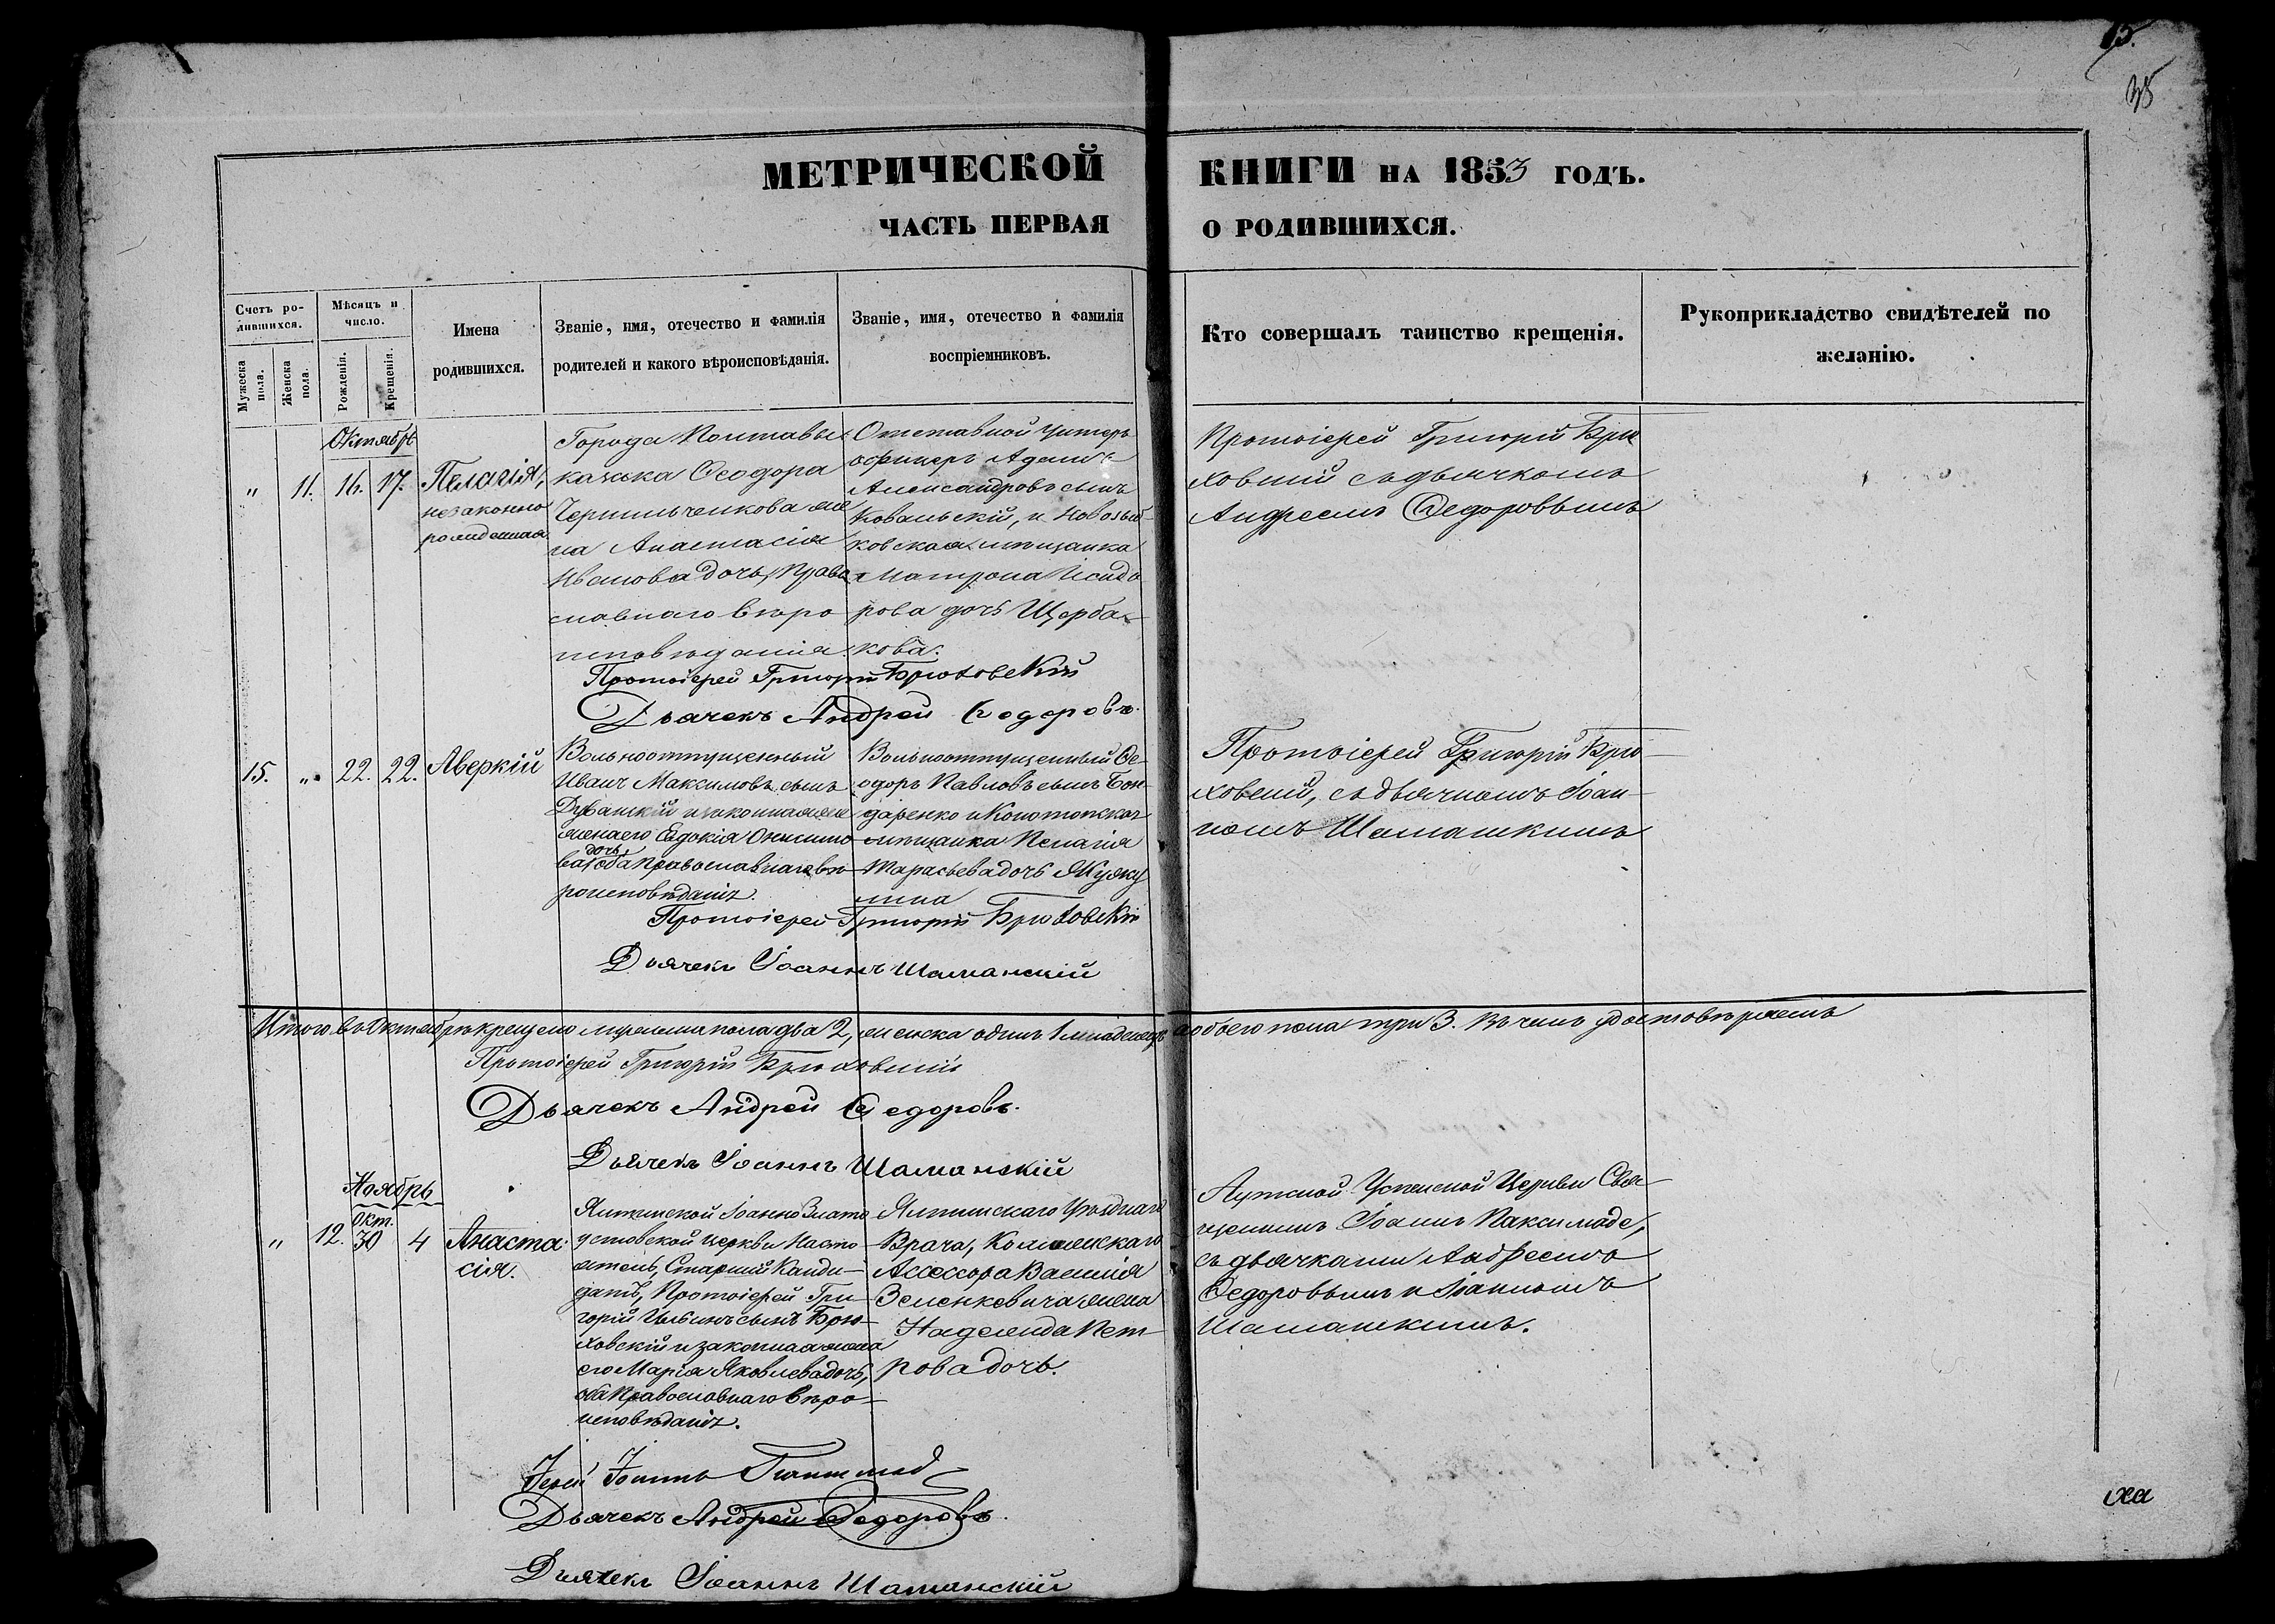 15.
35
МЕТРИЧЕСКОЙ КНИГИ НА 1853 ГОДЪ.
ЧАСТЬ ПЕРВАЯ О РОДИВШИХСЯ.
Счетъ ро-
дившихся.
Мужеска пола.
Женска пола.
Мѣсяцъ и
число.
Рожденія.
Крещенія.
Имена
родившихся.
Званіе, имя, отечество и фамилія
родителей и какого вѣроисповѣданія.
Званіе, имя, отечество и фамилія
воспріемниковъ.
Кто совершалъ таинство крещенія.
Рукоприкладство свидѣтелей по
желанію.
Октябрь
" 11. 16. 17.
Пелагія,
незаконно
рожденная.
Города Полтавы
казака Ѳеодора
Чернильченкова же
на Анастасія
Иванова дочь, Право
славнаго вѣро
исповѣданія.
Отставной Унтеръ
офицеръ Адамъ
Александровъ сынъ
Ковальскій, и Новозыб-
ковская мѣщанка
Матрона Исидо
рова дочь Щерба-
кова.
Протоіерей Григорій Брю
ховскій съ дьячкомъ
Андреемъ Ѳедоровымъ
Протоіерей Григорій Брюховскій
Дьячекъ Андрей Ѳедоровъ.
15. " 22. 22. Аверкій
Вольноотпущенный
Иванъ Максимовъ сынъ
и законная же
жена его Евдокія Онисимо
ва дочь, оба Православнаго вѣ
роисповѣданія.
Вольноотпущенный Ѳе-
одоръ Павловъ сынъ Бон-
даренко и Конотопская
мѣщанка Пелагія
Тарасьева дочь
Протоіерей Григорій Брю-
ховскій, съ дьячкомъ Іоан-
номъ Шаманскимъ
Протоіерей Григорій Брюховскій
Дьячекъ Іоаннъ Шаманскій
Итого въ Октябрѣ крещено мужеска пола два 2, женска одинъ 1 младенецъ а обоего пола три 3. Въ чемъ удостовѣряемъ
Протоіерей Григорій Брюховскій
Дьячекъ Андрей Ѳедоровъ.
Дьячекъ Іоаннъ Шаманскій
Ноябрь
" 12. Окт. 30 4
Анаста-
сія.
Ялтинской Іоанно Злато
устовской церкви Насто
ятель, Старшій Канди-
датъ, Протоіерей Гри-
горій Ильинъ сынъ Брю-
ховскій и законная жена
его Марія Яковлева дочь,
оба Православнаго вѣро-
исповѣданія.
Ялтинскаго Уѣзднаго
Врача, Коллежскаго
Ассессора Василія
Зеленкевича жена
Надежда Пет-
рова дочь.
Аутской Успенской Церкви Свя-
щенникъ Іоаннъ Паксимаде,
съ дьячками Андреемъ
Ѳедоровымъ и Іоанномъ
Шаманскимъ.
Іерей Іоаннъ
Дьячекъ Андрей Ѳедоровъ.
Дьячекъ Іоаннъ Шаманскій